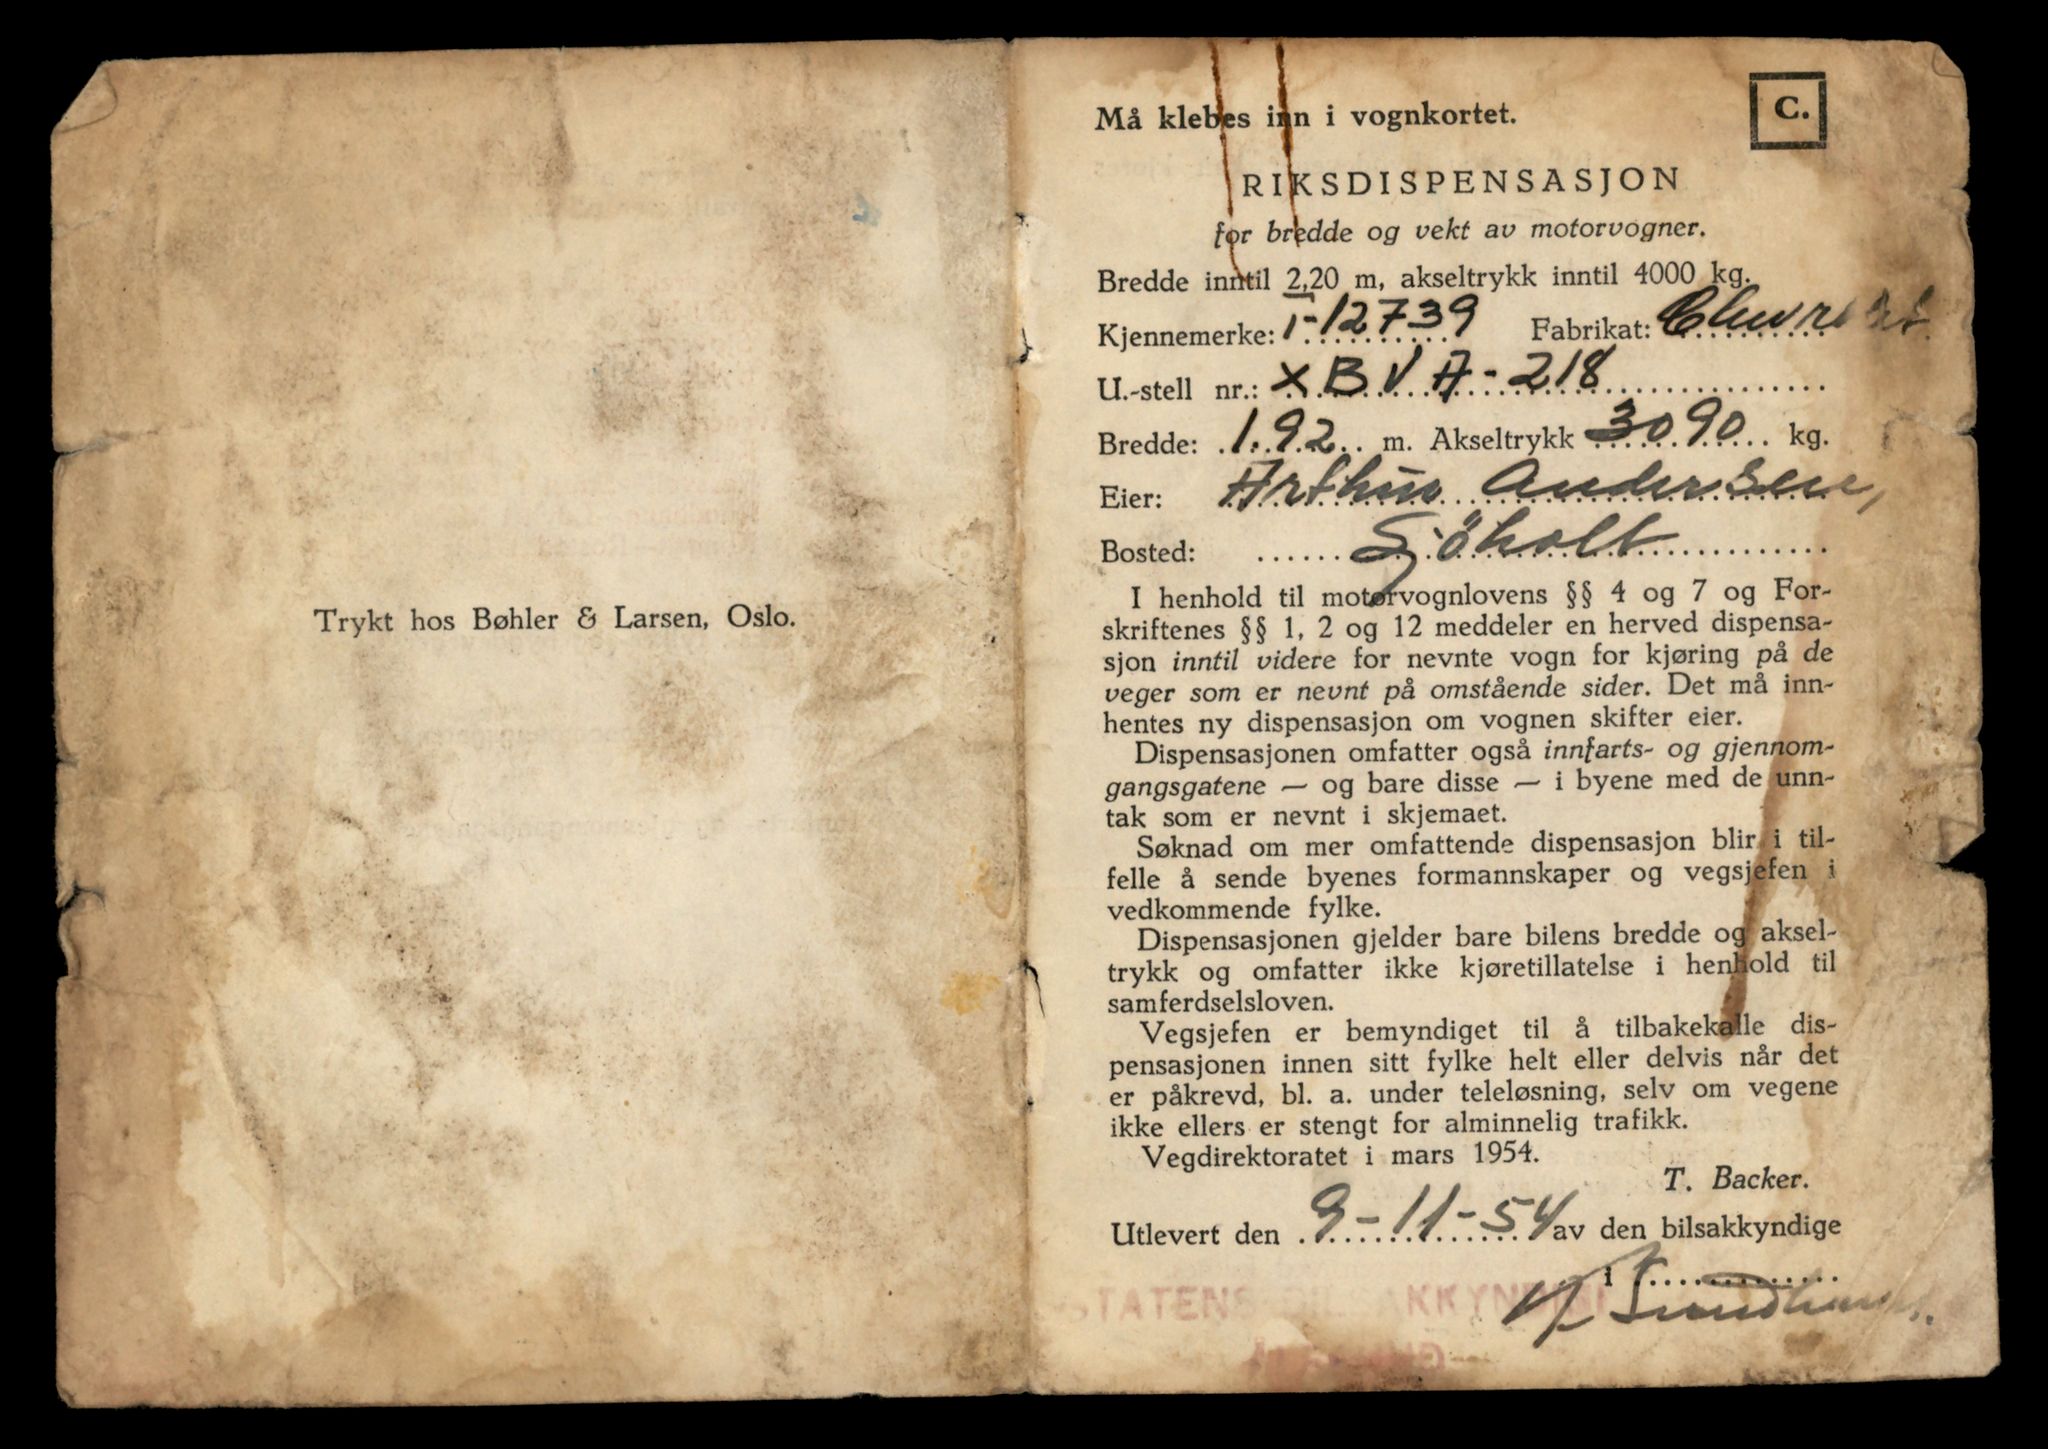 Trykt hos Bøhler & Larsen, Oslo.
Må klebes inn i vognkortet.
C.
RIKSDISPENSASJON
for bredde og vekt av motorvogner.
Bredde inntil 2,20 m, akseltrykk inntil 4000 kg.
Kjennemerke: T-12739 Fabrikat: Chevrolet
U.-stell nr.: XBVA-218
Bredde: 1.92 m. Akseltrykk 3090 kg.
Eier: Arthur Andersen,
Bosted: Sjöholt
I henhold til motorvognlovens §§ 4 og 7 og For-
skriftenes §§ 1, 2 og 12 meddeler en herved dispensa-
sjon inntil videre for nevnte vogn for kjøring på de
veger som er nevnt på omstående sider. Det må inn-
hentes ny dispensasjon om vognen skifter eier.
Dispensasjonen omfatter også innfarts- og gjennom-
gangsgatene — og bare disse — i byene med de unn-
tak som er nevnt i skjemaet.
Søknad om mer omfattende dispensasjon blir i til-
felle å sende byenes formannskaper og vegsjefen i
vedkommende fylke.
Dispensasjonen gjelder bare bilens bredde og aksel-
trykk og omfatter ikke kjøretillatelse i henhold til
samferdselsloven.
Vegsjefen er bemyndiget til å tilbakekalle dis-
pensasjonen innen sitt fylke helt eller delvis når det
er påkrevd, bl. a. under teleløsning, selv om vegene
ikke ellers er stengt for alminnelig trafikk.
Vegdirektoratet i mars 1954.
T. Backer.
Utlevert den 9-11-54 av den bilsakkyndige
i
STATENS